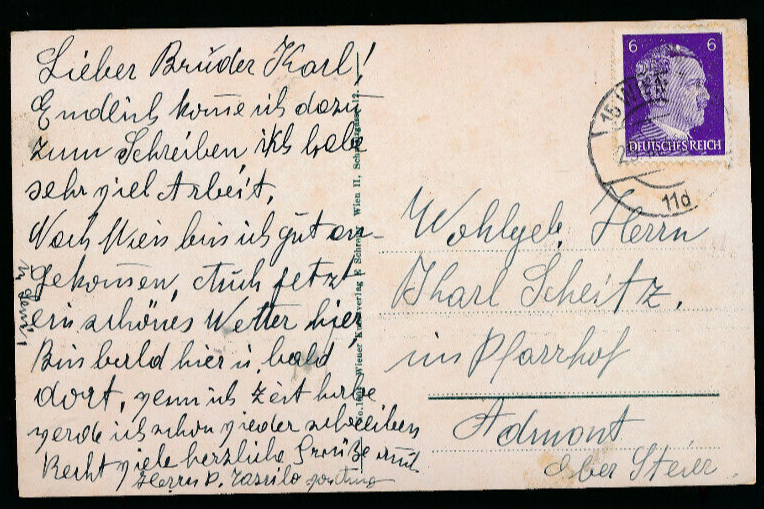 Lieber Bruder Karl!
Endlich kome ich dazu
zum Schreiben ich habe
sehr viel Arbeit.
Nach Wien bin ich gut an-
gekomen, Auch jetzt
ein schönes Wetter hier
Bin bald hier u. bald
dort, wenn ich Zeit habe
werde ich schon wieder schreiben
Recht viele herzliche Grüße auch
Herrn P.
Wiener Kunstverlag Wien II,
6 6
DEUTSCHES REICH
15 WIEN
11d
Wohlgeb. Herrn
Kharl Scheitz.
im Pfarrhof
Admont
Ober Steier.